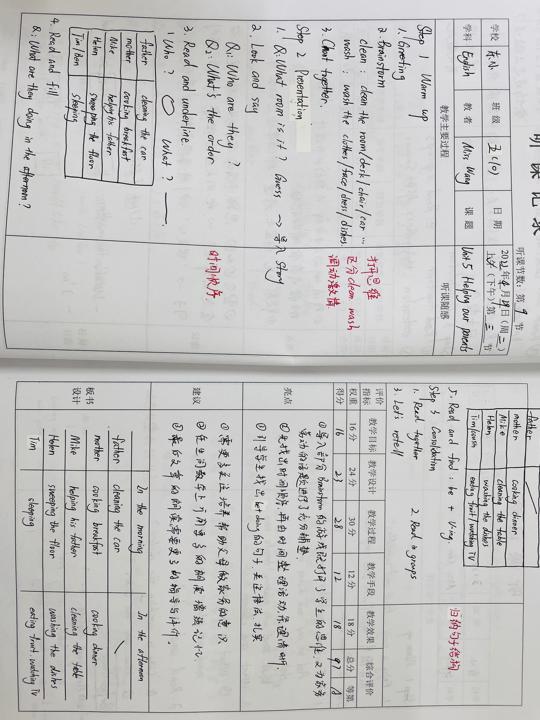 听课记录
听课节数：第 9 节
学校 东小 班级 五(10) 日期 2022年4月19日(周二)
上午(下午)第 三 节
学科 English 教者 Miss Wang 课题 Unit 5 Helping our parents
教学主要过程 听课随感
Step 1 Warm up
1. Greeting
2. Brainstorm
clean : clean the room/desk/chair/car ...
wash : wash the clothes/face/dress/dishes.
打开思维
区分clean wash
调动激情
3. Chant together.
Step 2 Presentation
1. Q: What room is it? Guess → 导入 story
2. Look and say
Q1: Who are they?
Q2: What's the order
时间顺序.
3. Read and underline.
Who? ○ What? —.
father cleaning the car
mother cooking breakfast
Mike helping his father
Helen sweeping the floor
Tim/Ben sleeping
4. Read and fill
Q: What are they doing in the afternoon?
father
mother cooking dinner
Mike cleaning the table
Helen washing the dishes
Tim/cousin eating fruit/watching TV
5. Read and find : be + V-ing.
归纳句子结构
Step 3 Consolidation
1. Read together 2. Read in groups
3. Let's retell
评价指标 教学目标 教学设计 教学过程 教学手段 教学效果 综合评价
权重 16分 24分 30分 12分 18分 总分 等第
得分 16 23 28 12 18 97 A
亮点
①导入部分Brainstorm的游戏很好打开了学生的思维，又为家务
劳动的话题进行了充分铺垫.
②先找出时间顺序，再由时间整理活动，条理清晰.
③引导学生找出be doing的句子
建议
①需要多关注培养帮助父母做家务的意识
②在生词教学上可用更多的
板书设计
In the morning In the afternoon
father cleaning the car \
mother cooking breakfast cooking dinner
Mike helping his father cleaning the table
Helen sweeping the floor washing the dishes
Tim sleeping eating fruit, watching TV